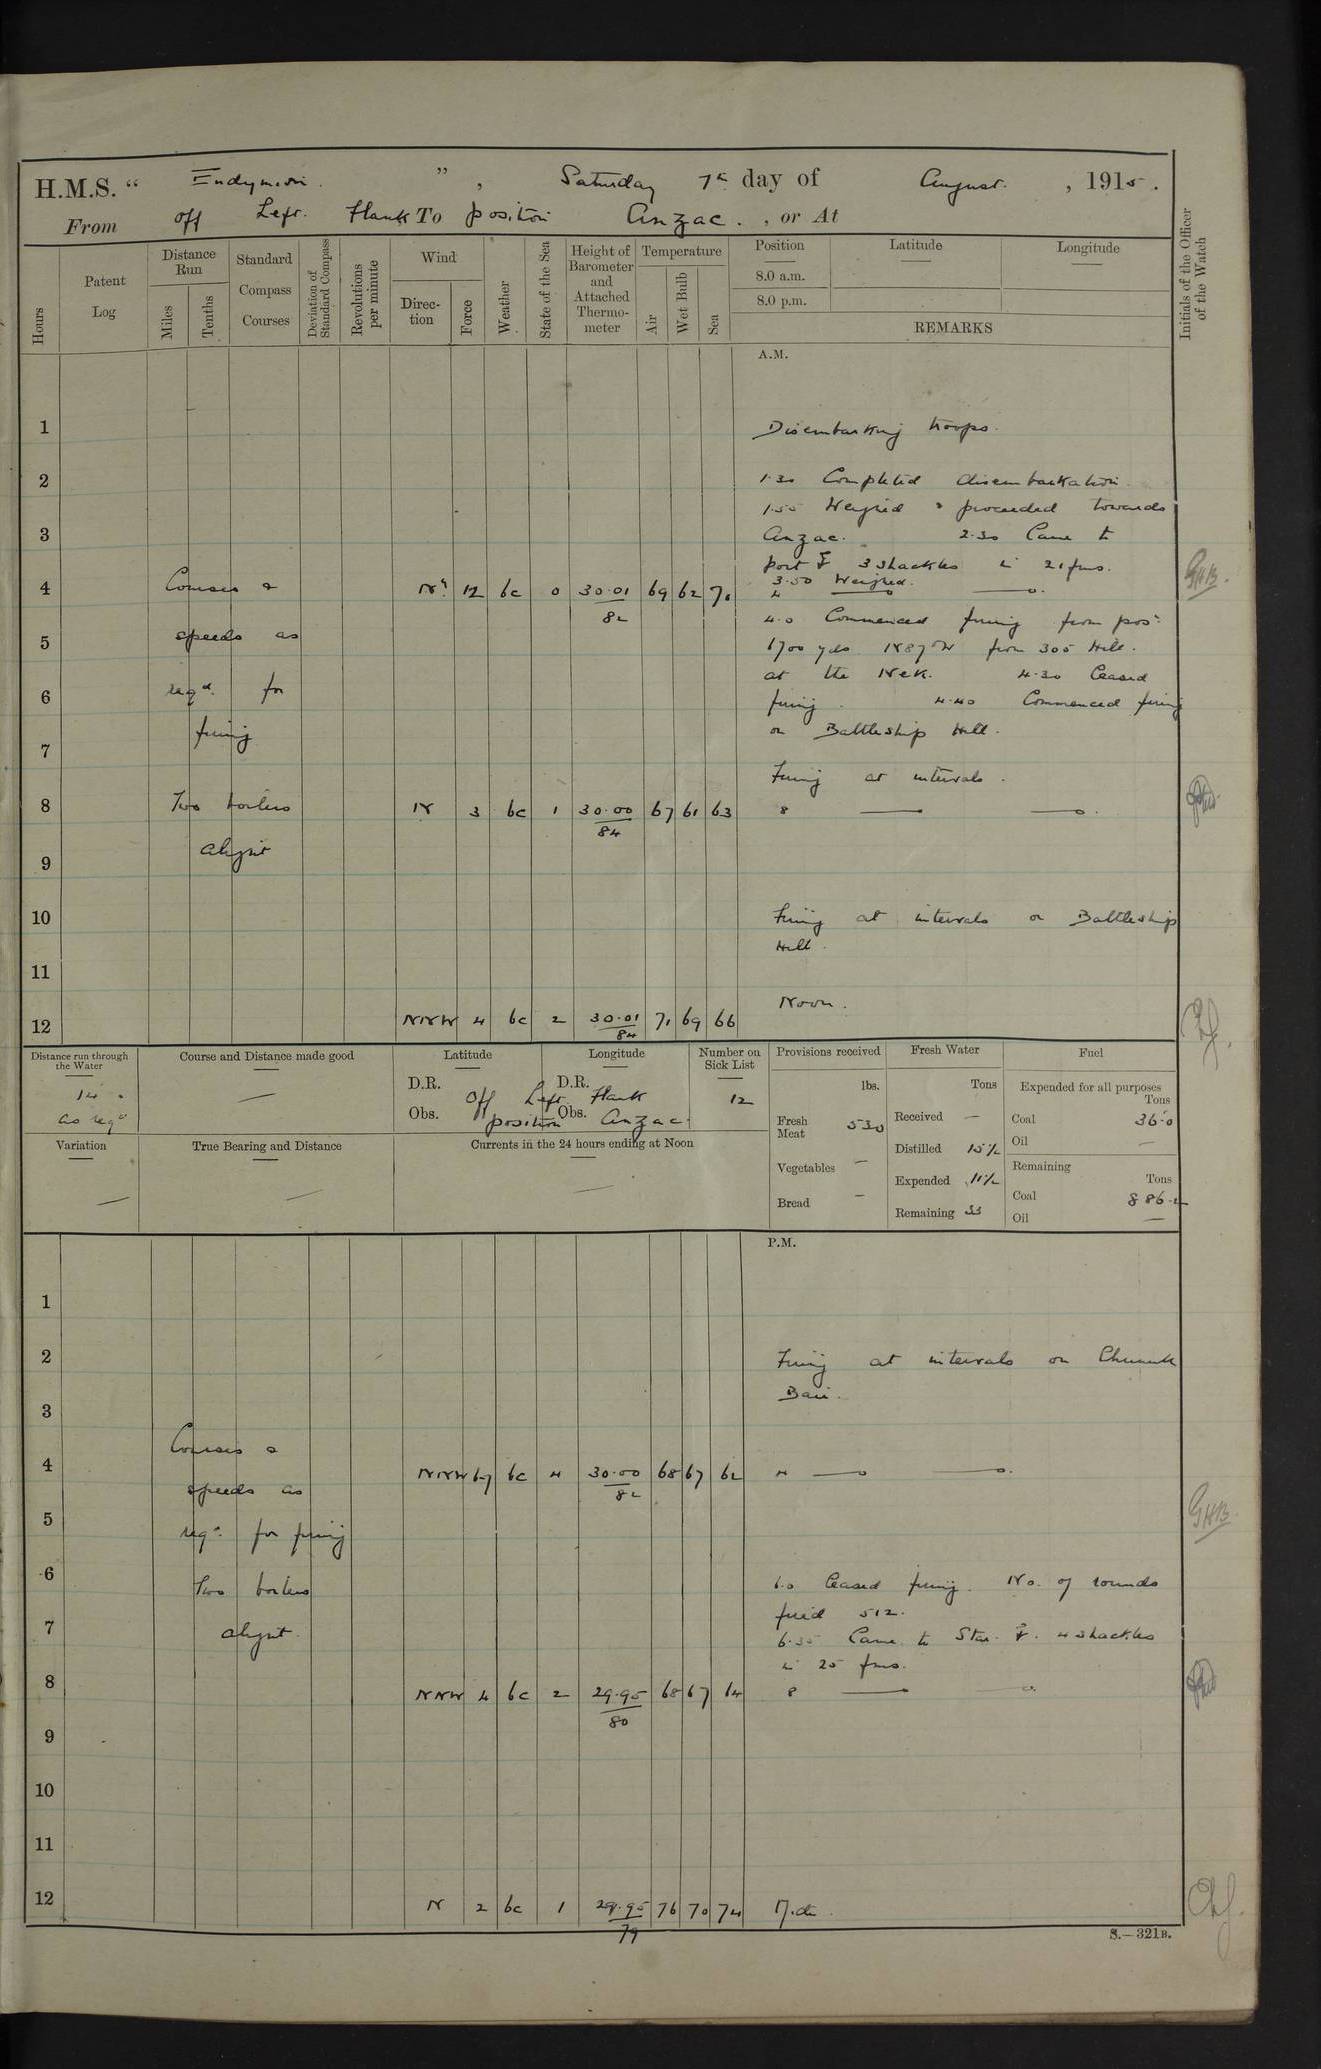 H.M.S. “ Endymion. ” , Saturday 7th day of August. , 1915.
From off Left. Flank To position Anzac. , or At
Hours
Patent Log
Distance Run
Miles
Tenths
Standard Compass Courses
Deviation of Standard Compass
Revolutions per minute
Wind
Direction
Force
Weather
State of the Sea
Height of Barometer and Attached Thermometer
Temperature
Air
Wet Bulb
Sea
Position
8.0 a.m.
8.0 p.m.
Latitude
Longitude
REMARKS
Initials of the Officer of the Watch
A.M.
1 Disembarking troops.
2 1.30 Completed disembarkation.
1.55 Weighed & proceeded towards
3 Anzac. 2.30 Came to
port 3 shackles in 21 fms.
3.50 Weighed.
4 Courses & Nly 12 bc 0 30.01 69 62 71 4
82
GHB.
4.0 Commenced firing from posn
5 speeds as 1700 yds N87W from 305 Hill.
at the Nek. 4.30 Ceased
6 reqd. for firing. 4.40 Commenced firing
firing on Battleship Hill.
7
Firing at intervals.
8 Two boilers N 3 bc 1 30.00 67 61 63 8
84
alight
9
10 Firing at intervals on Battleship
Hill.
11
Noon.
12 NNW 4 bc 2 30.01 71 69 66
84
Distance run through the Water
14.
as reqd
Course and Distance made good
—
Latitude
D.R.
Obs.
Longitude
D.R.
Obs.
Off Left Flank
position Anzac.
Number on Sick List
12
Provisions received
lbs.
Fresh Meat 530
Vegetables —
Bread —
Fresh Water
Tons
Received —
Distilled 15½
Expended 11½
Remaining 33
Fuel
Expended for all purposes
Tons
Coal 36.0
Oil —
Remaining
Tons
Coal 886.2
Oil —
Variation
—
True Bearing and Distance
—
Currents in the 24 hours ending at Noon
—
P.M.
1
2 Firing at intervals on Chunuk
Bair.
3
Courses &
4 NNW 6-7 bc 4 30.00 68 67 62 4
82
speeds as
5
GHB
reqd. for firing
6 Two boilers 6.0 Ceased firing. No. of rounds
fired 512.
7 alight. 6.35 Came to Star. 4 shackles
in 25 fms.
8 NNW 4 bc 2 29.95 68 67 64 8
80
9
10
11
12 N 2 bc 1 29.95 76 70 74 Mdt.
79
S.—321B.